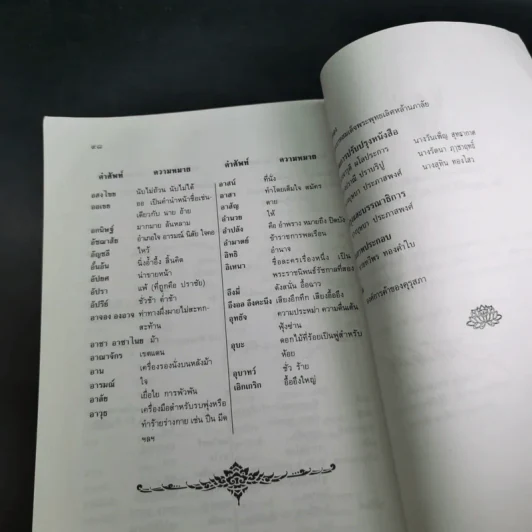 ๙๘
คำศัพท์ ความหมาย
นับไม่ถ้วน นับไม่ได้
ออ เป็นคำนำหน้าชื่อเช่น
เดียวกับ นาย อ้าย
มากมาย ล้นหลาม
อัชฌาสัย อำเภอใจ อารมณ์ นิสัย ใจคอ
อัญชลี ไหว้
อั้นอ้น นิ่งอ้ำอึ้ง สิ้นคิด
อัปยศ น่าขายหน้า
อัปรา แพ้ (ที่ถูกคือ ปราชัย)
อัปรีย์ ชั่วช้า ต่ำช้า
อาจอง องอาจ ท่าทางผึ่งผายไม่สะทก-
สะท้าน
อาชา อาชาไนย ม้า
อาณาจักร เขตแดน
อาน เครื่องรองนั่งบนหลังม้า
อารมณ์ ใจ
อาลัย เยื่อใย การพัวพัน
อาวุธ เครื่องมือสำหรับรบพุ่งหรือ
ทำร้ายร่างกาย เช่น ปืน มีด
ฯลฯ
คำศัพท์ ความหมาย
อาสน์ ที่นั่ง
อาสา ทำโดยเต็มใจ สมัคร
อาสัญ ตาย
อำนวย ให้
อำปลัง คือ อำพราง หมายถึง ปิดบัง
อำมาตย์ ข้าราชการพลเรือน
อิทธิ อำนาจ
อิเหนา ชื่อละครเรื่องหนึ่ง เป็น
พระราชนิพนธ์รัชกาลที่สอง
อึงมี่ ดังสนั่น อื้อฉาว
อึงอล อึงคะนึง เสียงอึกทึก เสียงอื้ออึง
อุทธัจ ความประหม่า ความตื่นเต้น
ฟุ้งซ่าน
อุบะ ดอกไม้ที่ร้อยเป็นพู่สำหรับ
ห้อย
อุบาทว์ ชั่ว ร้าย
เอิกเกริก อื้ออึงใหญ่
สมเด็จพระพุทธเลิศหล้านภาลัย
การปรับปรุงหนังสือ
นางวันเพ็ญ สุทธากาศ
ผลไประการ
นางรัตนา ฤาชาฤทธิ์
ปราบริปู
นางสุทิน ทองไสว
ประภาสพงศ์
คณะบรรณาธิการ
ประภาสพงศ์
ภาพประกอบ
ทองคำใบ
องค์การค้าของคุรุสภา